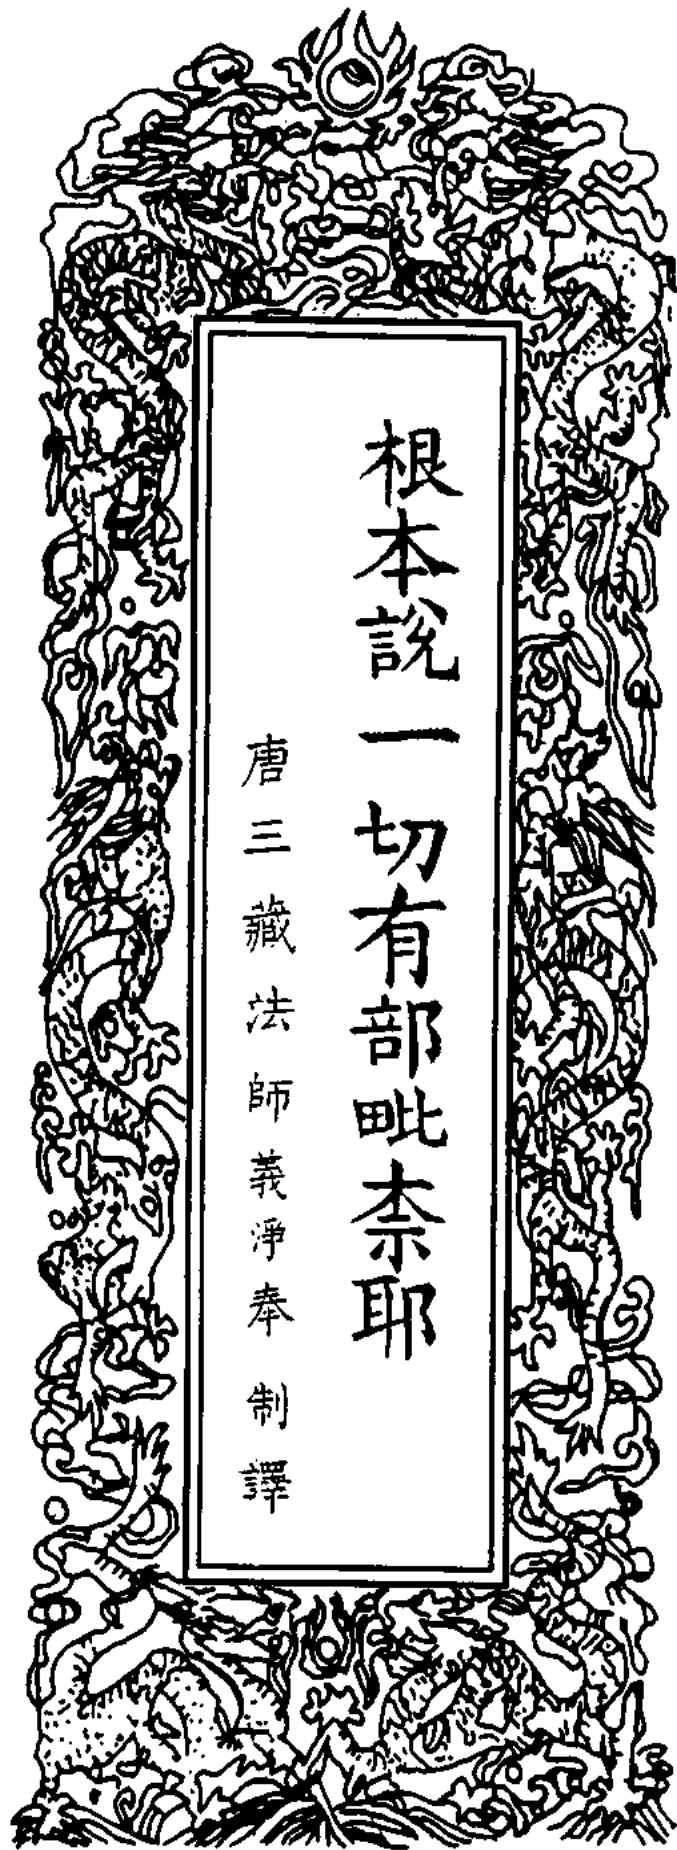 根本說一切有部毗柰耶
唐三藏法師義淨奉 制譯